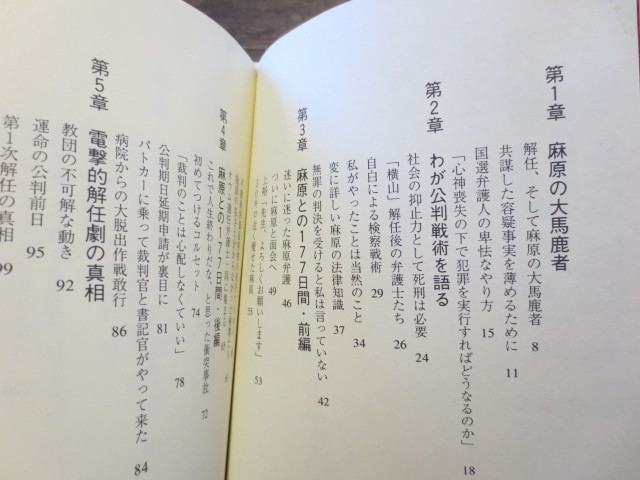 第1章 麻原の大馬鹿者
解任、そして麻原の大馬鹿者 8
共謀した容疑事実を薄めるために 11
国選弁護人の卑怯なやり方 15
「心神喪失の下で犯罪を実行すればどうなるのか」 18
第2章 わが公判戦術を語る
社会の抑止力として死刑は必要 24
「横山」解任後の弁護士たち 26
自白による検察戦術 29
私がやったことは当然のこと 34
変に詳しい麻原の法律知識 37
無罪の判決を受けると私は言っていない 42
第3章 麻原との177日間・前編
迷いに迷った麻原弁護 46
ついに麻原と面会へ 49
「上祐、先生、よろしくお願いします」 53
55
第4章 麻原との177日間・後編
これで人生終わりだな、と思った衝突事故 72
初めてつけるコルセット 74
「裁判のことは心配しなくていい」 78
公判期日延期申請が裏目に 81
パトカーに乗って裁判官と書記官がやって来た 84
病院からの大脱出作戦敢行 86
第5章 電撃的解任劇の真相
教団の不可解な動き 92
運命の公判前日 95
第1次解任の真相 99